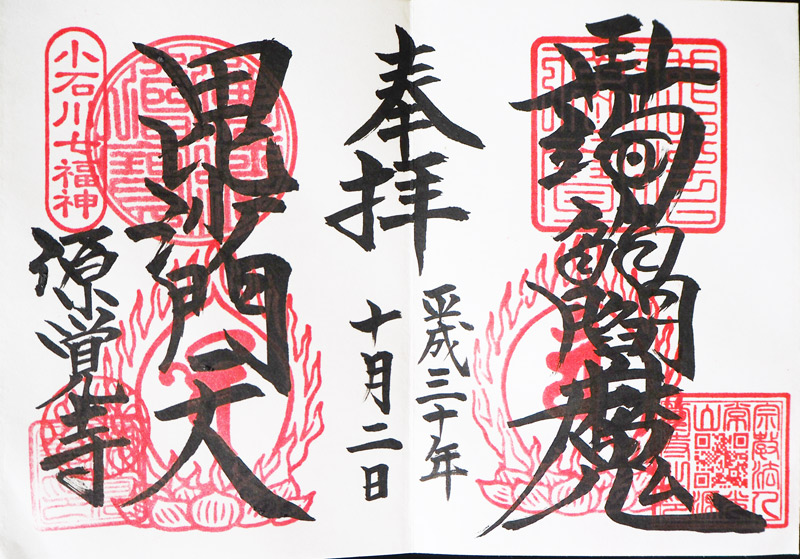 蒟蒻閻魔
奉拝
平成三十年
十月二日
毘沙門天
源覚寺
小石川七福神
宗教法人